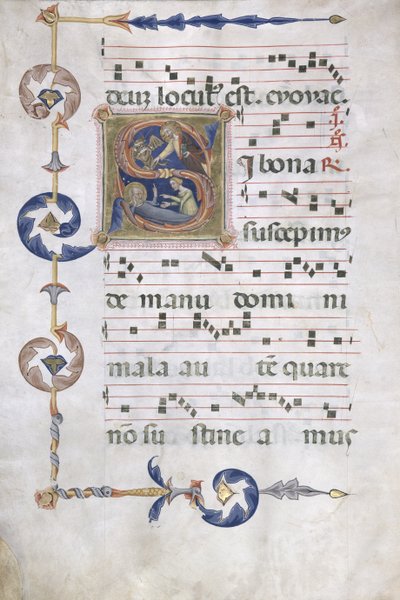 deuz locut' est. evovae.
.I.
SI bona R.
suscepimꝰ
de manu domi ni
mala au tē quare
nō su stine a mus